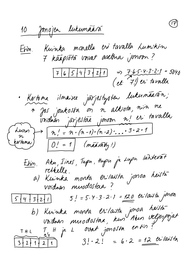 17
10 Jonojen lukumäärä
Esim. Kuinka monella eri tavalla kuninkaan
7 kääpiötä voivat asettua jonoon?
7 6 5 4 3 2 1 ⇒ 7·6·5·4·3·2·1 = 5040
(et 7!) eri tavalla
• Kutsutaan järjestysten lukumäärä:
Jos joukossa on n alkiota, niin ne
voidaan järjestää jonoon n! eri tavalla
luvun n kertoma
n! = n·(n-1)·(n-2)·...·3·2·1
0! = 1 (määritelty!)
Esim. Aku, Iines, Tupu, Hupu ja Lupu lähtevät
retkelle.
a) Kuinka monta erilaista jonoa heistä
voidaan muodostaa?
5 4 3 2 1 5! = 5·4·3·2·1 = 120 erilaista jonoa
b) Kuinka monta erilaista jonoa heistä
voidaan muodostaa, kun veljespojat
T H L T, H ja L ovat jonossa ensin?
3 2 1 2 1 3!·2! = 6·2 = 12 erilaista